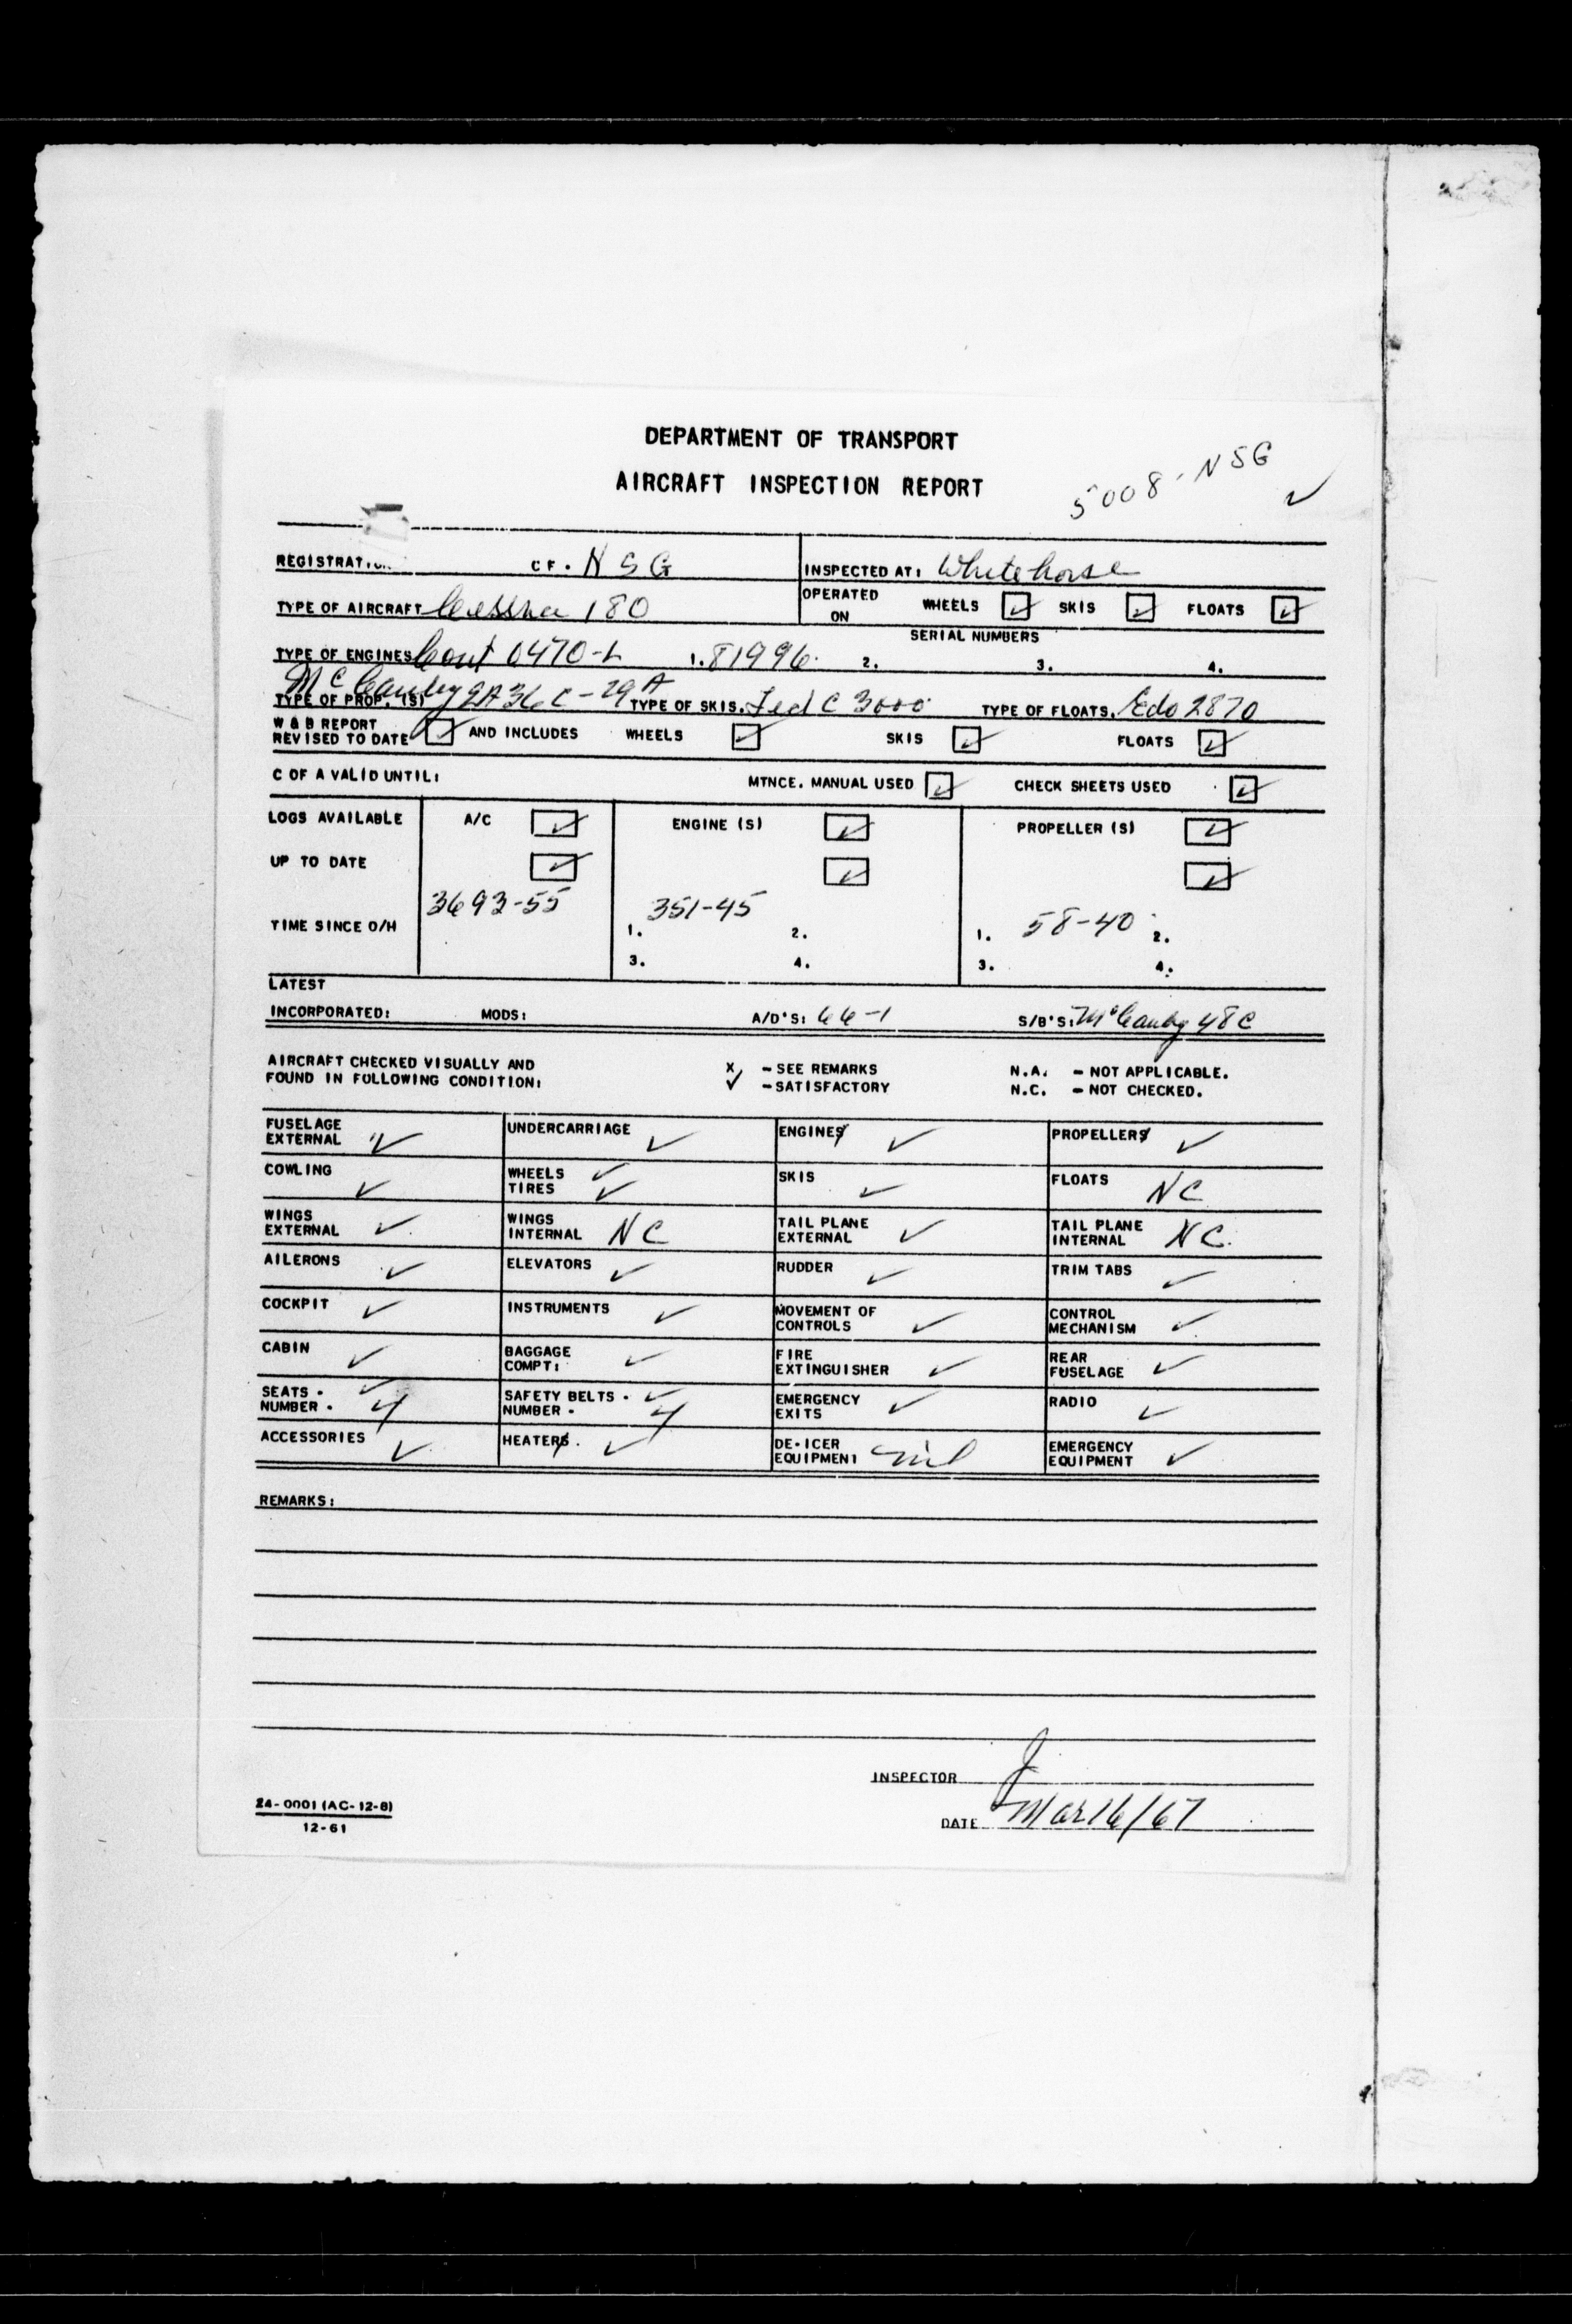 DEPARTMENT OF TRANSPORT
AIRCRAFT INSPECTION REPORT
5008-NSG ✓
REGISTRATION CF. NSG INSPECTED AT: Whitehorse
TYPE OF AIRCRAFT Cessna 180 OPERATED ON WHEELS ✓ SKIS ✓ FLOATS ✓
SERIAL NUMBERS
TYPE OF ENGINES Cont 0470-L 1. 81996 2. 3. 4.
TYPE OF PROP. (S) McCauley 2A36C-29A TYPE OF SKIS. Fed C 3000 TYPE OF FLOATS. Edo 2870
W & B REPORT
REVISED TO DATE ✓ AND INCLUDES WHEELS ✓ SKIS ✓ FLOATS ✓
C OF A VALID UNTIL: MTNCE. MANUAL USED ✓ CHECK SHEETS USED ✓
LOGS AVAILABLE A/C ✓ ENGINE (S) ✓ PROPELLER (S) ✓
UP TO DATE ✓ ✓ ✓
3693-55 351-45 58-40
TIME SINCE O/H 1. 2. 1. 2.
3. 4. 3. 4.
LATEST
INCORPORATED: MODS: A/D'S: 66-1 S/B'S: McCauley 48C
AIRCRAFT CHECKED VISUALLY AND X - SEE REMARKS N.A. - NOT APPLICABLE.
FOUND IN FOLLOWING CONDITION: ✓ - SATISFACTORY N.C. - NOT CHECKED.
FUSELAGE EXTERNAL ✓ UNDERCARRIAGE ✓ ENGINES ✓ PROPELLERS ✓
COWLING ✓ WHEELS ✓ TIRES ✓ SKIS ✓ FLOATS NC
WINGS EXTERNAL ✓ WINGS INTERNAL NC TAIL PLANE EXTERNAL ✓ TAIL PLANE INTERNAL NC
AILERONS ✓ ELEVATORS ✓ RUDDER ✓ TRIM TABS ✓
COCKPIT ✓ INSTRUMENTS ✓ MOVEMENT OF CONTROLS ✓ CONTROL MECHANISM ✓
CABIN ✓ BAGGAGE COMPT: ✓ FIRE EXTINGUISHER ✓ REAR FUSELAGE ✓
SEATS - ✓ NUMBER - 4 SAFETY BELTS - ✓ NUMBER - 4 EMERGENCY EXITS ✓ RADIO ✓
ACCESSORIES ✓ HEATERS. ✓ DE-ICER EQUIPMENT nil EMERGENCY EQUIPMENT ✓
REMARKS:
INSPECTOR
24-0001 (AC-12-8)
12-61
DATE Mar 16/67